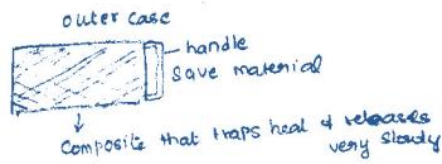 outer case
handle
save material
composite that traps heat & releases
very slowly